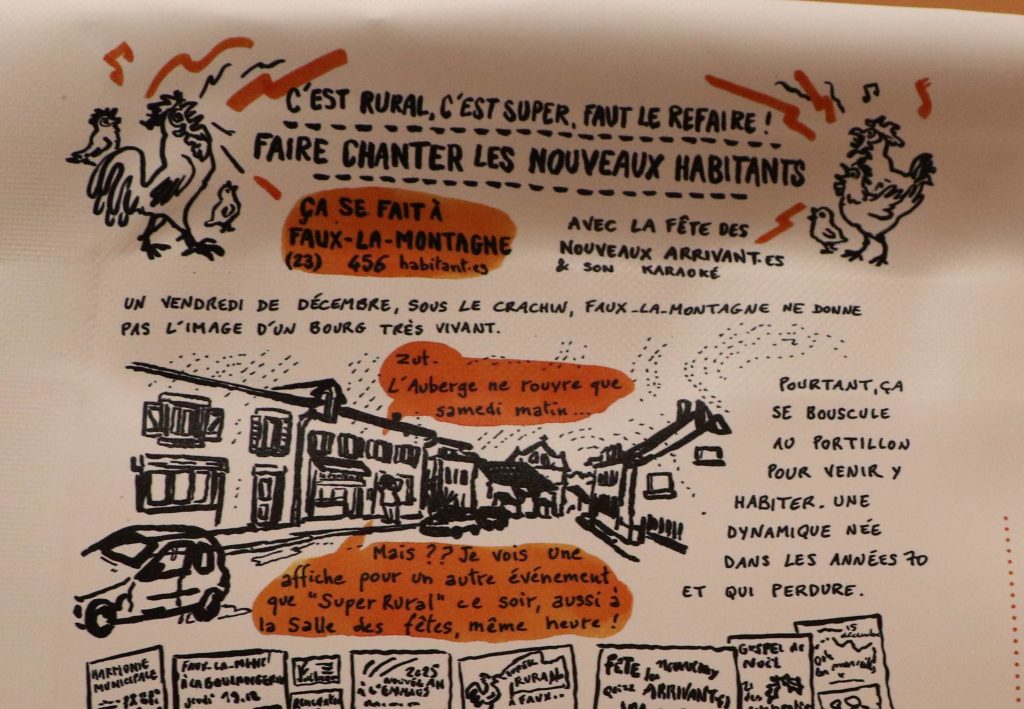 C'EST RURAL, C'EST SUPER, FAUT LE REFAIRE !
FAIRE CHANTER LES NOUVEAUX HABITANTS
ÇA SE FAIT À
FAUX-LA-MONTAGNE
(23) 456 habitant·es
AVEC LA FÊTE DES
NOUVEAUX ARRIVANT·ES
& SON KARAOKÉ
UN VENDREDI DE DÉCEMBRE, SOUS LE CRACHIN, FAUX-LA-MONTAGNE NE DONNE
PAS L'IMAGE D'UN BOURG TRÈS VIVANT.
Zut.
L'Auberge ne rouvre que
samedi matin...
POURTANT, ÇA
SE BOUSCULE
AU PORTILLON
POUR VENIR Y
HABITER. UNE
DYNAMIQUE NÉE
DANS LES ANNÉES 70
ET QUI PERDURE.
Mais ?? Je vois une
affiche pour un autre événement
que "Super Rural" ce soir, aussi à
la Salle des fêtes, même heure !
HARMONIE
MUNICIPALE
À LA BOULANGERIE
jeudi 19.12
2025
À L'EMMAÜS
SUPER
RURAL
À FAUX...
FÊTE
ARRIVANT·ES
GOSPEL DE
NOËL
15
décembre